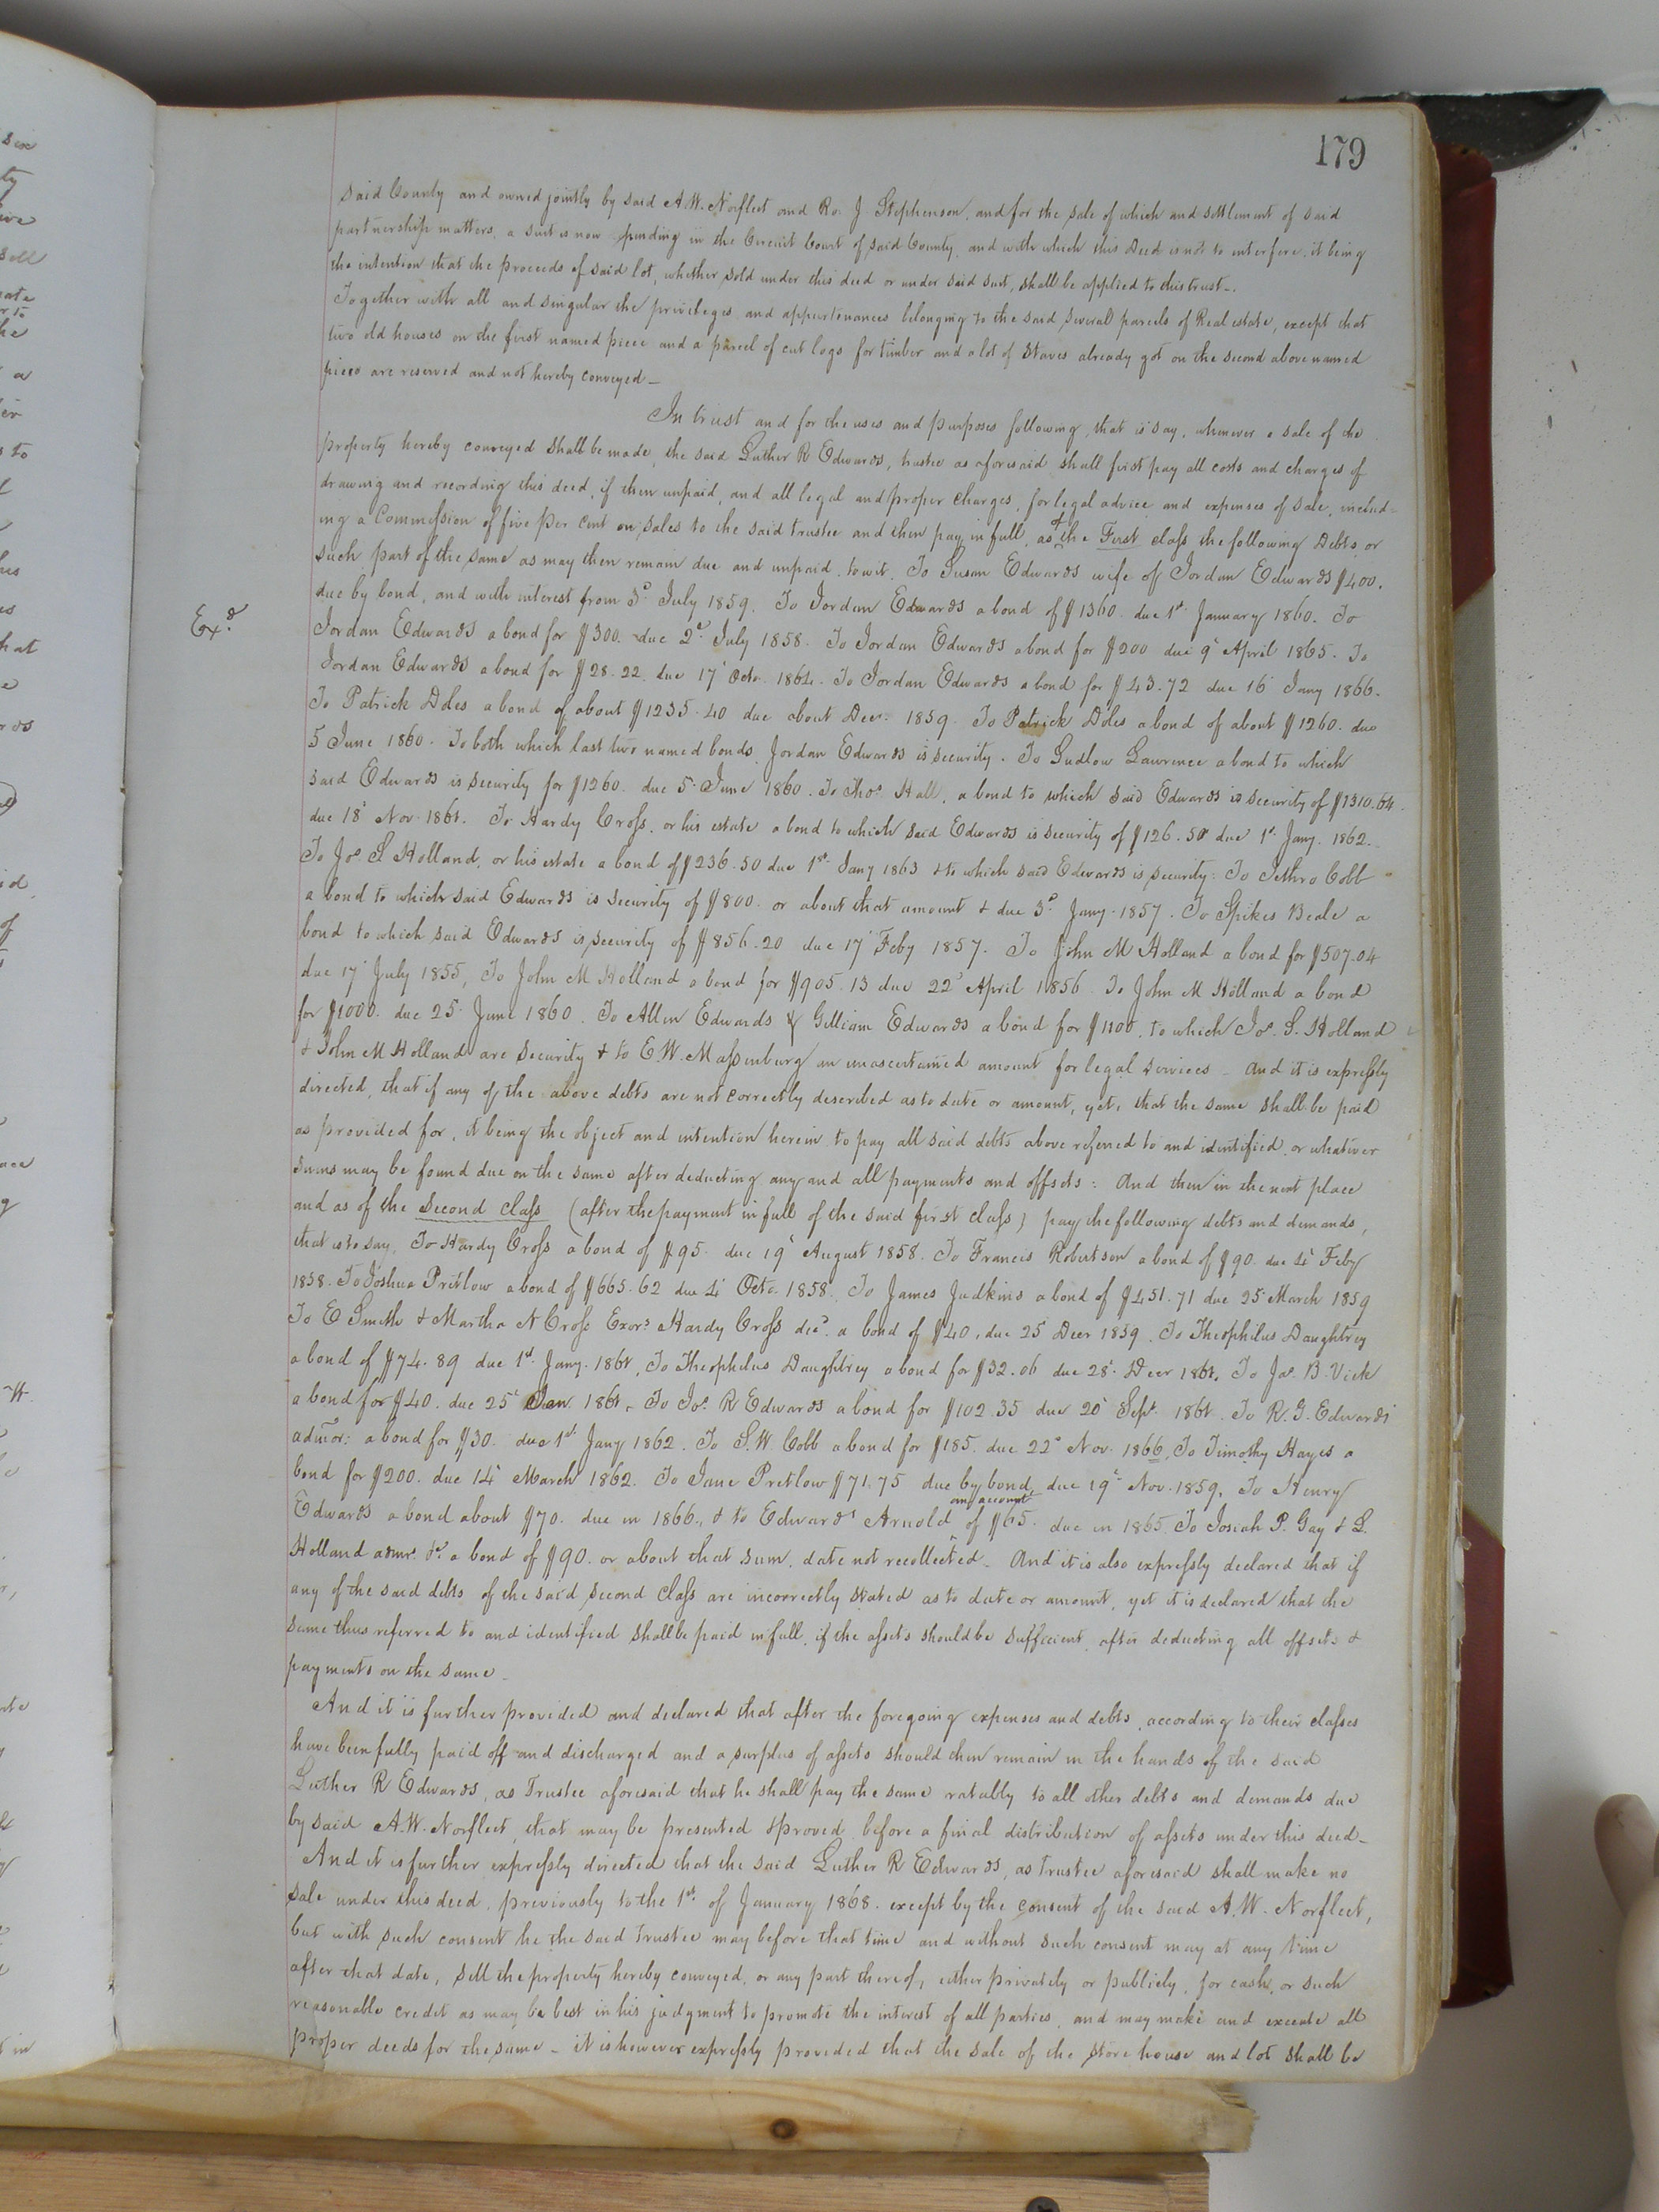 179
said County and owned jointly by said A. W. Norfleet and Ro. J. Stephenson, and for the sale of which and settlement of said
partnership matters, a suit is now pending in the Circuit Court of said County, and with which this Deed is not to interfere, it being
the intention that the proceeds of said lot, whether sold under this deed or under said suit, shall be applied to this trust—
Together with all and singular the privileges and appurtenances belonging to the said several parcels of Real estate, except that
two old houses on the first named piece and a parcel of cut logs for timber and a lot of staves already got on the second above named
piece are reserved and not hereby conveyed—
In trust and for the uses and purposes following, that is say, whenever a sale of the
property hereby conveyed shall be made, the said Luther R Edwards, trustee as aforesaid shall first pay all costs and charges of
drawing and recording this deed, if then unpaid, and all legal and proper charges, for legal advice and expenses of sale, includ-
ing a Commission of five per cent on sales to the said trustee and then pay in full, as of the First class the following Debts, or
such part of the same as may then remain due and unpaid, to wit, To Susan Edwards wife of Jordan Edwards $400.
due by bond, and with interest from 3d July 1859. To Jordan Edwards a bond of $1360. due 1st January 1860. To
Exd.
Jordan Edwards a bond for $300. due 2d July 1858. To Jordan Edwards a bond for $200 due 9 April 1865. To
Jordan Edwards a bond for $28.22. due 17 Octo. 1864. To Jordan Edwards a bond for $43.72 due 16 Jany 1866.
To Patrick Doles a bond of about $1235.40 due about Decr. 1859. To Patrick Doles a bond of about $1260. due
5 June 1860. To both which last two named bonds, Jordan Edwards is security. To Gudlow Lawrence a bond to which
said Edwards is security for $1260. due 5 June 1860. To Thos. Hall, a bond to which said Edwards is security of $1310.64.
due 18 Nov. 1861. To Hardy Cross, or his estate a bond to which said Edwards is security of $126.50 due 1st Jany. 1862.
To Jos. S Holland, or his estate a bond of $236.50 due 1st. Jany 1863 & to which said Edwards is security. To Jethro Cobb
a bond to which said Edwards is security of $800. or about that amount & due 3d Jany. 1857. To Spikes Beale a
bond to which said Edwards is security of $856.20 due 17 Feby 1857. To John M Holland a bond for $507.04
due 17 July 1855, To John M Holland a bond for $905.13 due 22d April 1856. To John M Holland a bond
for $1000. due 25 June 1860. To Allen Edwards & Gilliam Edwards a bond for $1100. to which Jos. S. Holland
& John M Holland are security & to E. W. Massenburg an unascertained amount for legal services — And it is expressly
directed, that if any of the above debts are not correctly described as to date or amount, yet, that the same shall be paid
as provided for, it being the object and intention herein to pay all said debts above referred to and identified, or whatever
sums may be found due on the same after deducting any and all payments and offsets: And then in the next place
and as of the second class (after the payment in full of the said first class) pay the following debts and demands,
that is to say, To Hardy Cross a bond of $95. due 19 August 1858. To Francis Robertson a bond of $90. due 4 Feby
1858. To Joshua Pretlow a bond of $665.62 due 4 Octo. 1858. To James Judkins a bond of $451.71 due 25 March 1859
To E Smith & Martha N Cross Exors. Hardy Cross decd. a bond of $40, due 25 Decr 1859. To Theophilus Daughtrey
a bond of $74.89 due 1st. Jany. 1861, To Theophilus Daughtrey a bond for $32.06 due 28 Decr 1861, To Jas. B. Vick
a bond for $40. due 25 Jan 1861. To Jos. R Edwards a bond for $102.35 due 20 Sept. 1861. To R. G. Edwards
admor: a bond for $30. due 1st. Jany 1862. To S. W. Cobb a bond for $185. due 22d Nov. 1866, To Timothy Hayes a
bond for $200. due 14 March 1862. To Jane Pretlow $71.75 due by bond, due 19 Nov. 1859, To Henry
Edwards a bond about $70. due in 1866., & to Edward Arnold an account of $65. due in 1865. To Josiah P. Gay & L.
Holland admr. &c. a bond of $90. or about that sum, date not recollected. And it is also expressly declared that if
any of the said debts of the said second Class are incorrectly stated as to date or amount, yet it is declared that the
same thus referred to and identified shall be paid in full, if the assets should be sufficient, after deducting all offsets &
payments on the same.
And it is further provided and declared that after the foregoing expenses and debts, according to their classes
have been fully paid off and discharged and a surplus of assets should then remain in the hands of the said
Luther R Edwards, as Trustee aforesaid that he shall pay the same ratably to all other debts and demands due
by said A. W. Norfleet, that may be presented & proved before a final distribution of assets under this deed—
And it is further expressly directed that the said Luther R Edwards, as Trustee aforesaid shall make no
sale under this deed, previously to the 1st. of January 1868. except by the consent of the said A. W. Norfleet,
but with such consent he the said Trustee may before that time and without such consent may at any time
after that date, sell the property hereby conveyed, or any part thereof, either privately or publicly, for cash, or such
reasonable credit as may be best in his judgment to promote the interest of all parties, and may make and execute all
proper deeds for the same — it is however expressly provided that the sale of the store house and lot shall be